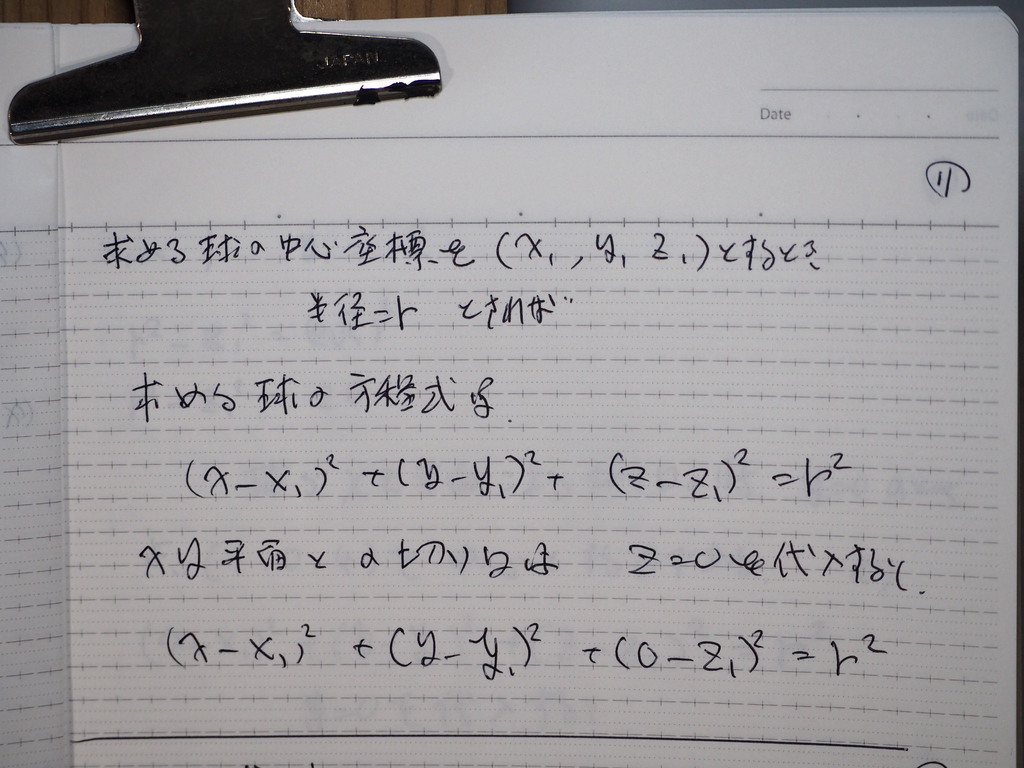 JAPAN
Date
⑪
求める球の中心座標を (x₁, y₁ z₁)とするとき
半径=r とすれば
求める球の方程式は.
(x-x₁)² +(y-y₁)²+ (z-z₁)² =r²
xy平面との切り口は z=0を代入すると.
(x-x₁)² +(y-y₁)² +(0-z₁)² =r²